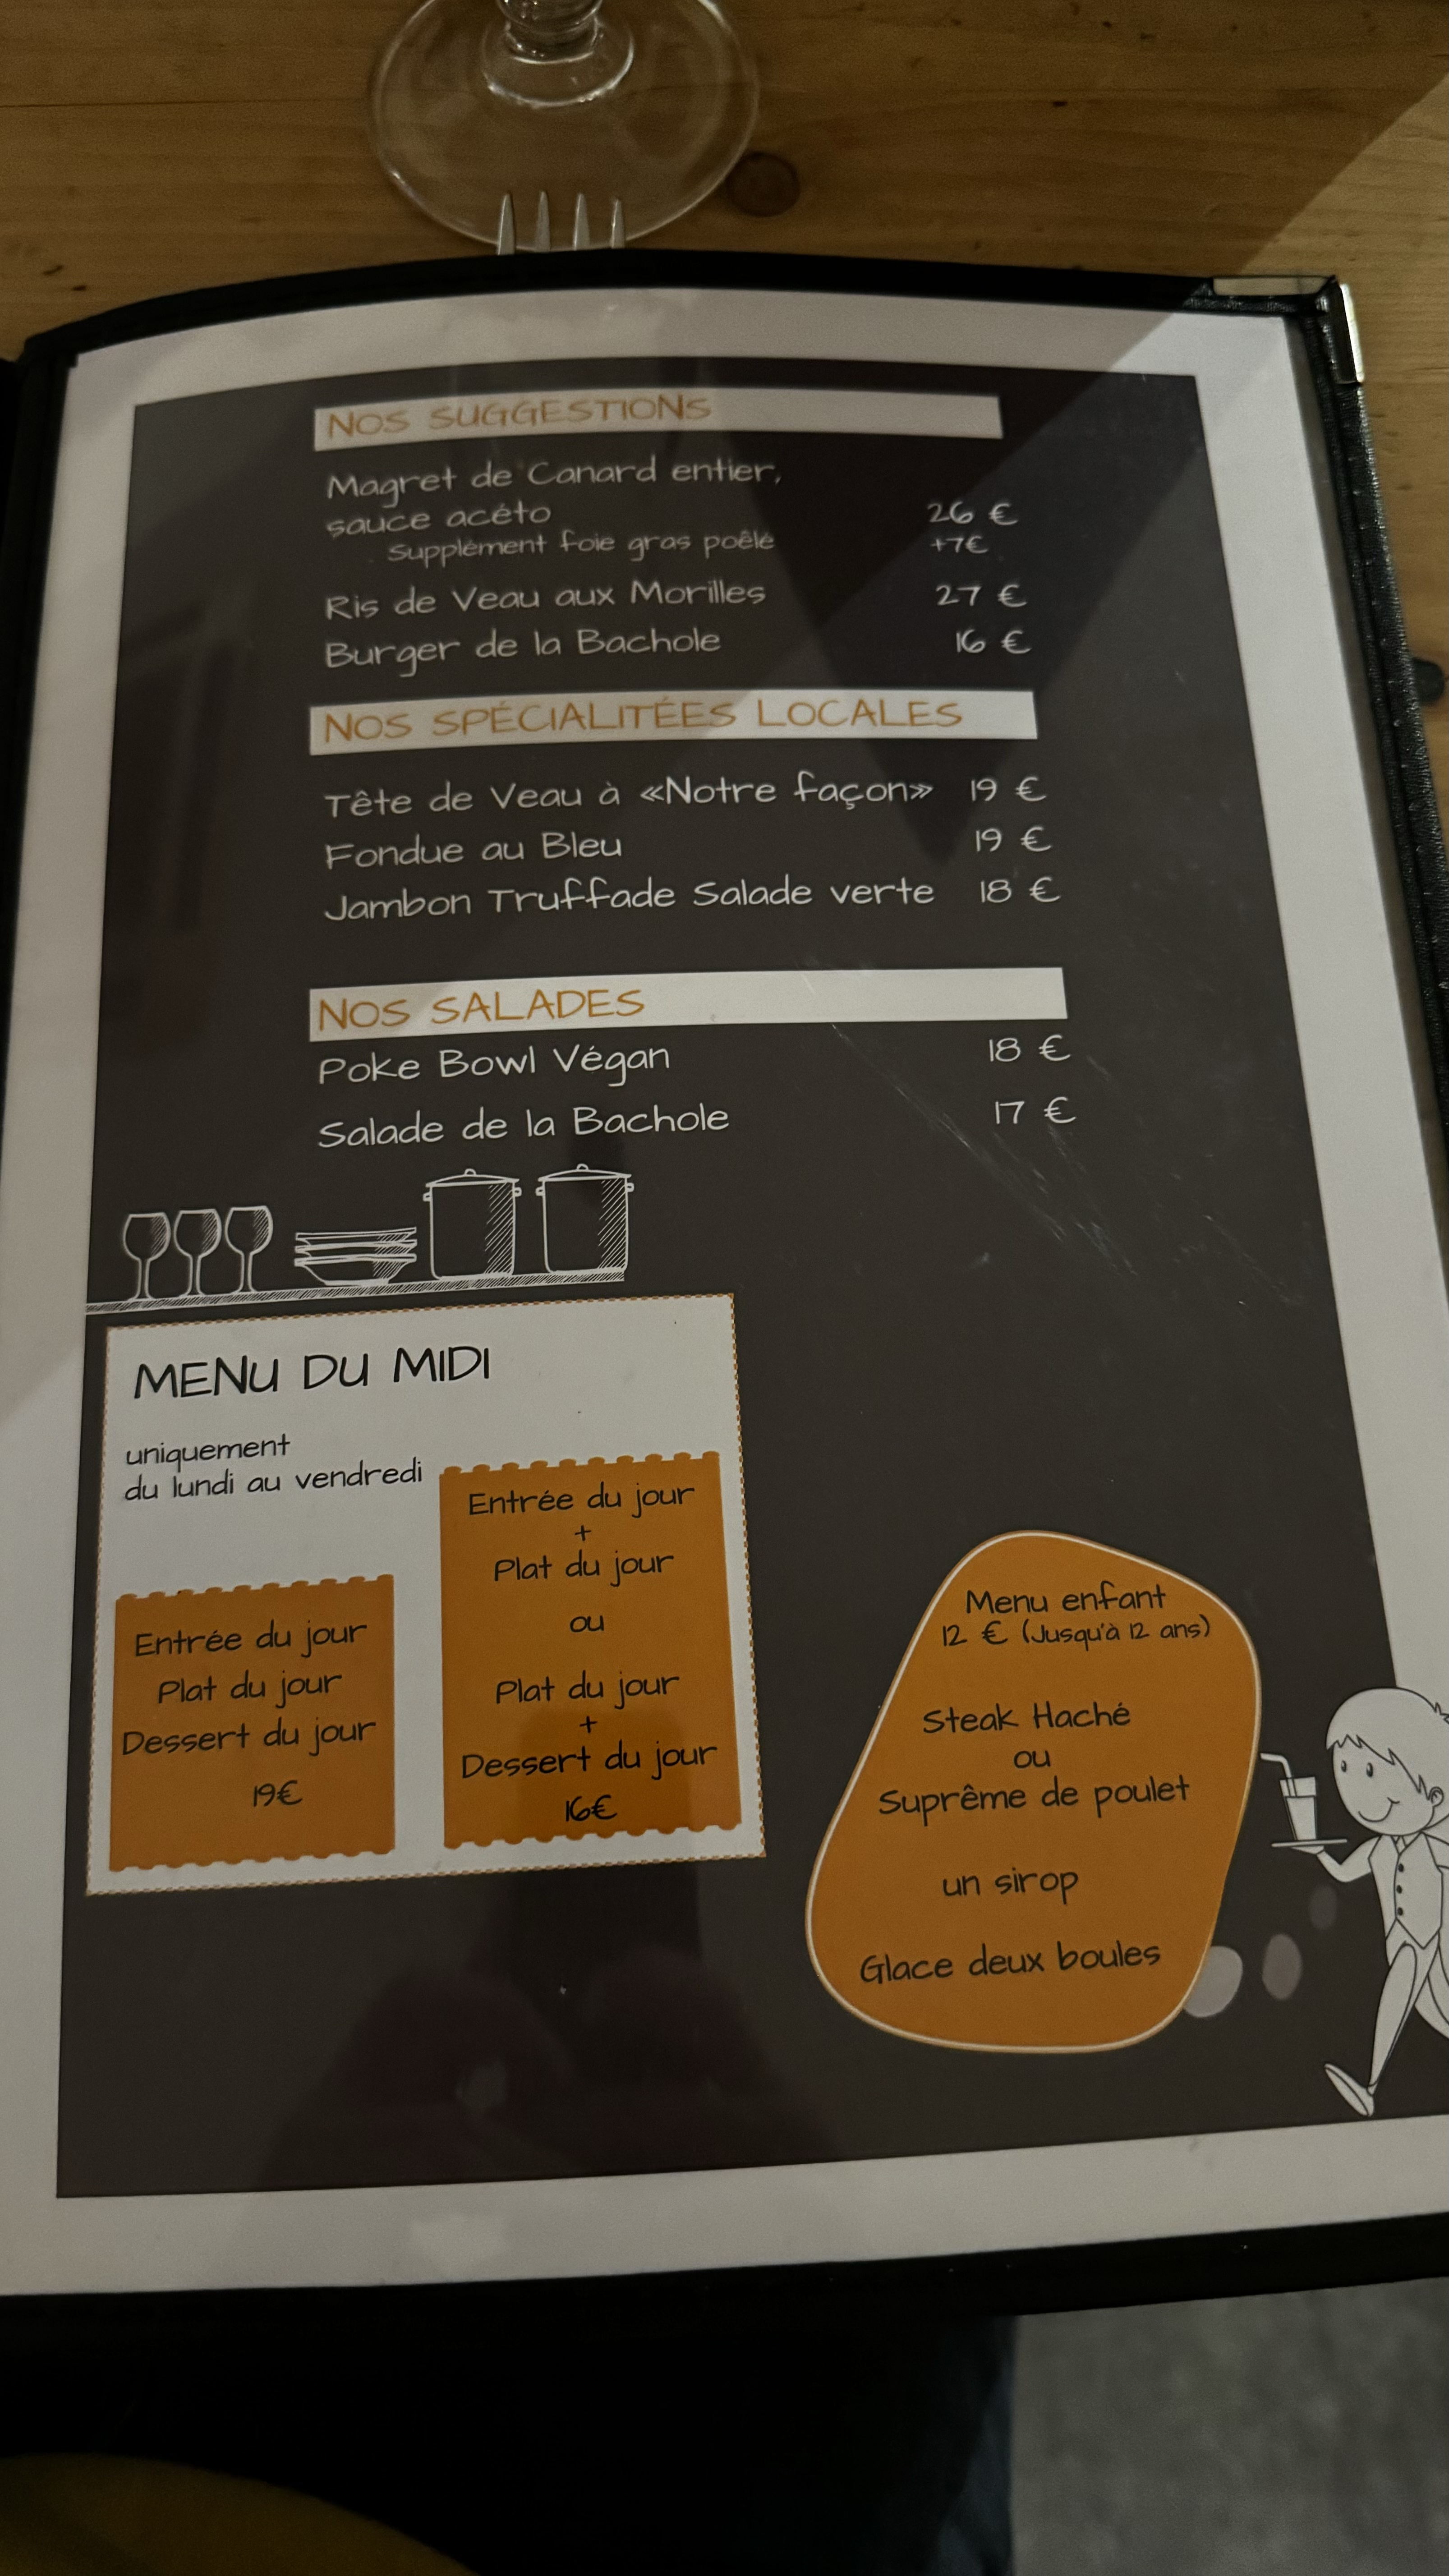 NOS SUGGESTIONS
Magret de Canard entier,
sauce acéto 26 €
Supplément foie gras poêlé +7€
Ris de Veau aux Morilles 27 €
Burger de la Bachole 16 €
NOS SPÉCIALITÉES LOCALES
Tête de Veau à «Notre façon» 19 €
Fondue au Bleu 19 €
Jambon Truffade Salade verte 18 €
NOS SALADES
Poke Bowl Végan 18 €
Salade de la Bachole 17 €
MENU DU MIDI
uniquement
du lundi au vendredi
Entrée du jour
Plat du jour
Dessert du jour
19€
Entrée du jour
+
Plat du jour
ou
Plat du jour
+
Dessert du jour
16€
Menu enfant
12 € (Jusqu'à 12 ans)
Steak Haché
ou
Suprême de poulet
un sirop
Glace deux boules